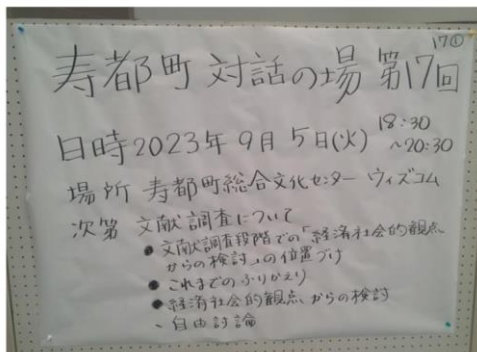 17①
寿都町 対話の場 第17回
日時 2023年 9月 5日(火) 18:30
～20:30
場所 寿都町総合文化センター ウィズコム
次第 文献調査について
● 文献調査段階での「経済社会的観点
からの検討」の位置づけ
● これまでのふりかえり
● 経済社会的観点からの検討
- 自由討論